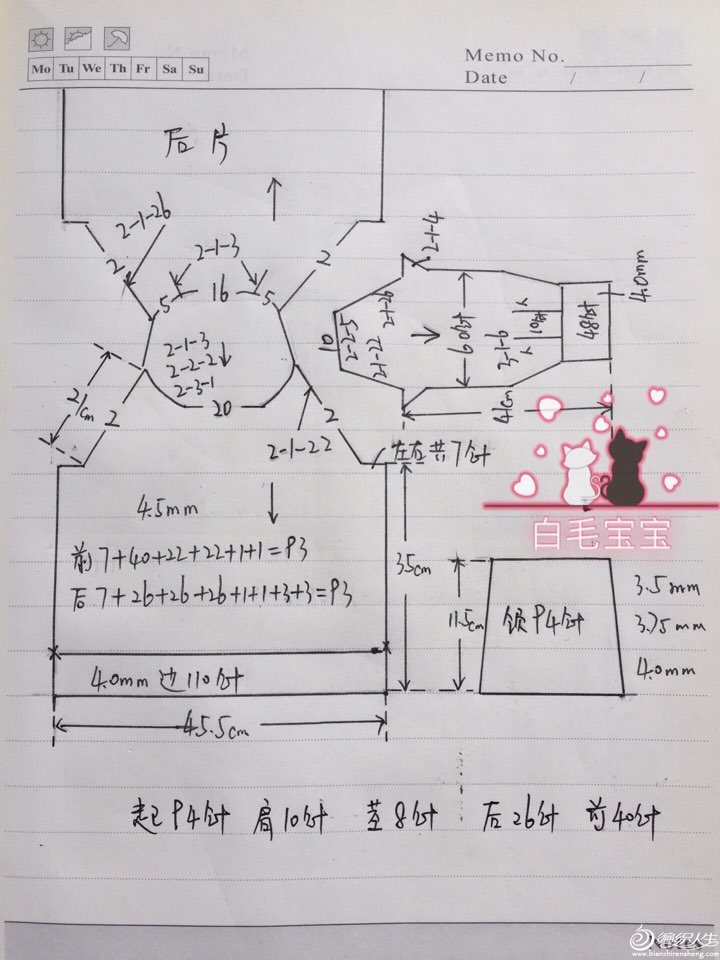 Memo No.
Mo Tu We Th Fr Sa Su
Date / /
后片
2-1-26
2-1-3
2
2
5 16 5
2-1-3
2-2-2
2-3-1
20
21cm
2
2
2-1-22
2-1-4
4.0mm
10
2-2-5
2-1-26
2-1-22
60针
3-1-6
10针
48针
41cm
左右共7针
4.5mm
前7+40+22+22+1+1=93
后7+26+26+26+1+1+3+3=93
35cm
4.0mm 边110针
45.5cm
白毛宝宝
11.5cm
领94针
3.5mm
3.75mm
4.0mm
起94针 肩10针 茎8针 后26针 前40针
Notes
编织人生
www.bianzhirensheng.com